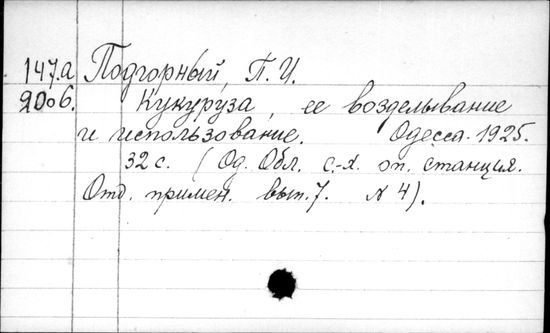 147.а Подгорный, П. И.
2006. Кукуруза, ее возделывание
и использование. Одесса. 1925.
32 с. (Од. Обл. с.-х. оп. станция.
Отд. примен. вып. 7. № 4).